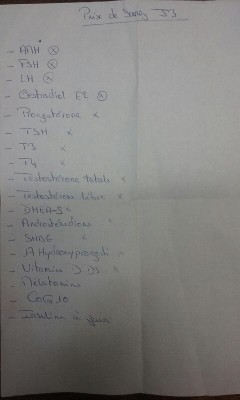 Prise de Sang J3
- AMH ⓧ
- FSH ⓧ
- LH ⓧ
- Oestradiol E2 ⓧ
- Progestérone x
- TSH x
- T3 x
- T4 x
- Testostérone totale x
- Testostérone Libre x
- DHEA-S x
- Androstenedione x
- SHBG x
- Vitamine D D3 x
- Melatonine
- CoQ10
- Insuline à jeun